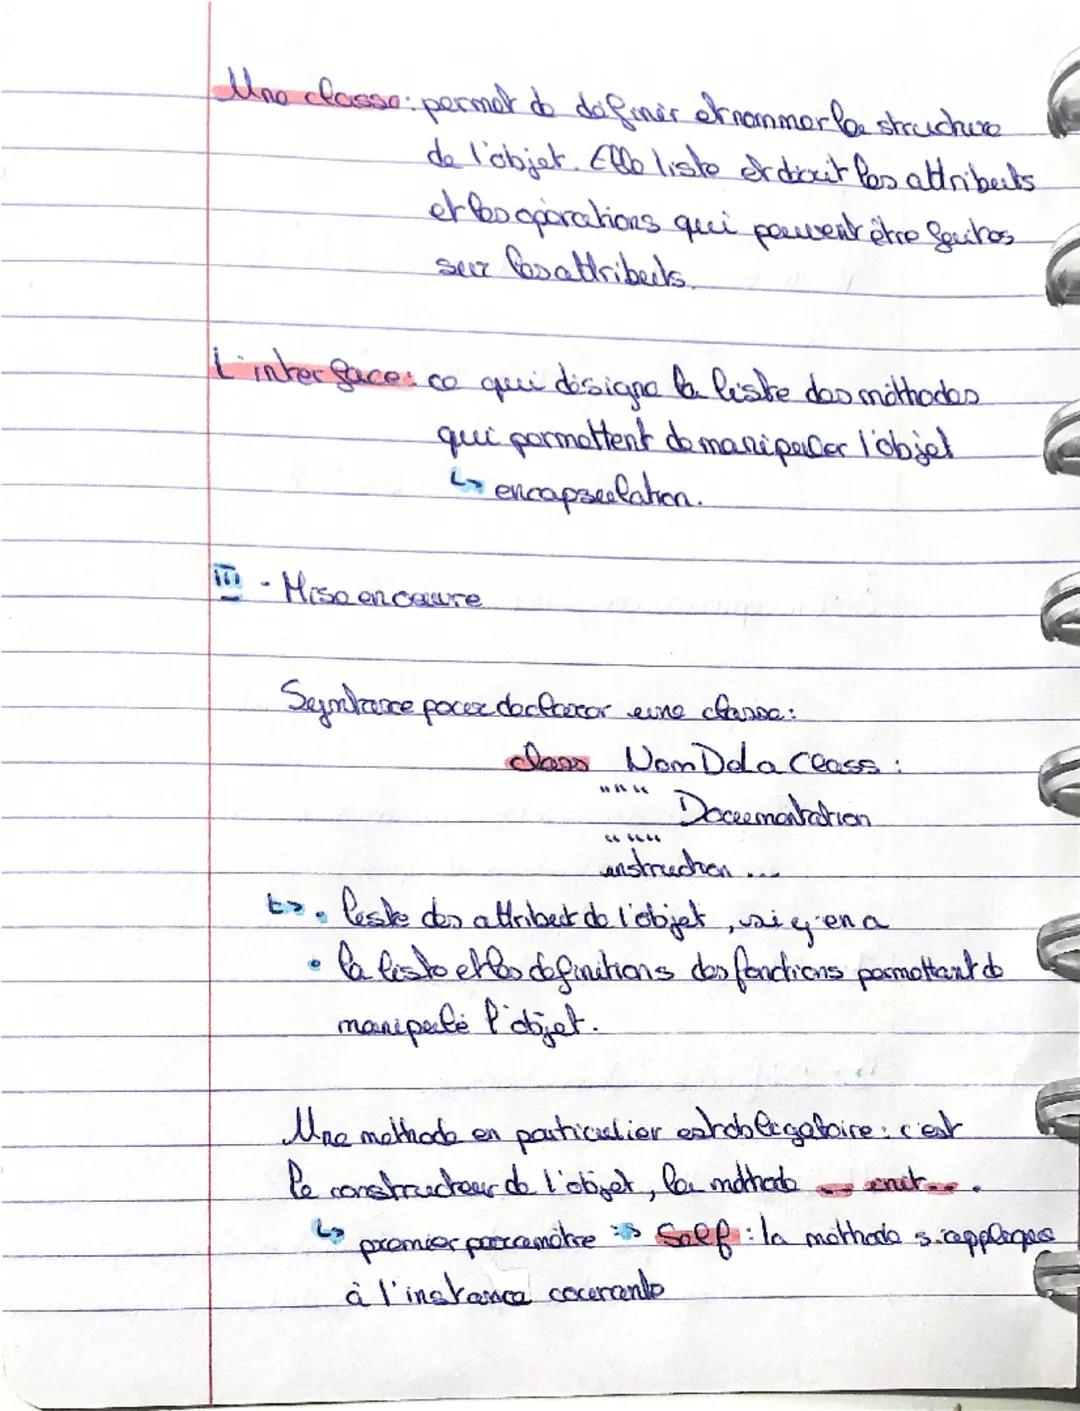 Une classe : permet de définir et nommer la structure
de l'objet. Elle liste et décrit les attributs
et les opérations qui peuvent être faites
sur les attributs.
L'interface : ce qui désigne la liste des méthodes
qui permettent de manipuler l'objet
↳ encapsulation.
III - Mise en œuvre
Syntaxe pour declarer une classe :
class NomDeLaClass :
"""
Documentation
"""
instruction ...
↳ • liste des attribut de l'objet, si y en a
• la liste et les définitions des fonctions permettant de
manipulé l'objet.
Une methode en particulier est obligatoire : c'est
le constructeur de l'objet, la méthode __init__.
↳ premier paramètre => Self : la méthode s'appliques
à l'instance courante